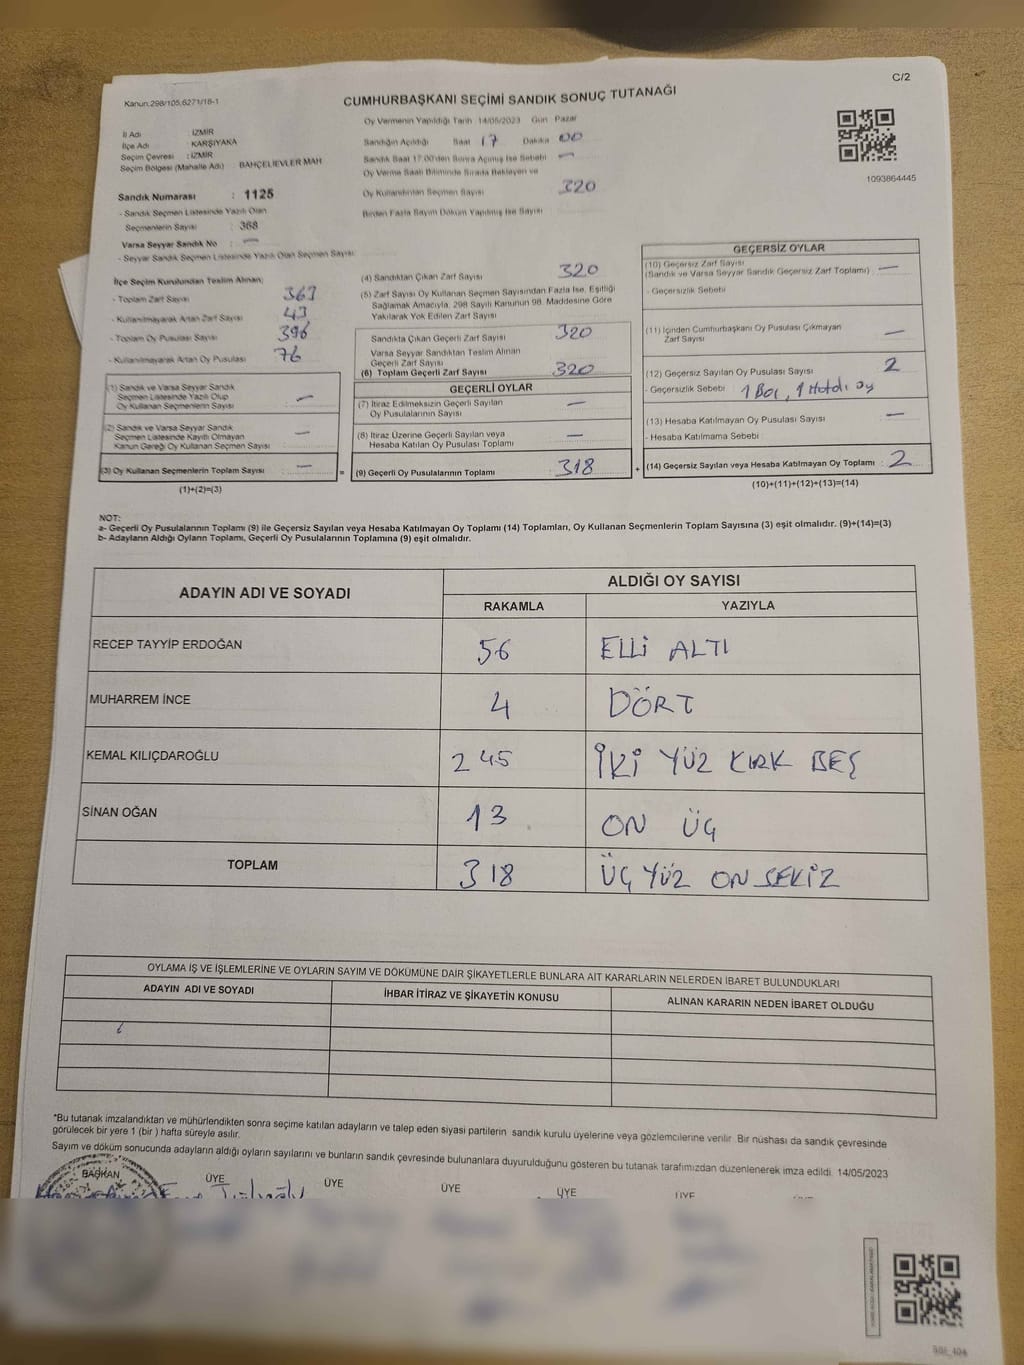 C/2
Kanun.298/105,6271/18-1
CUMHURBAŞKANI SEÇİMİ SANDIK SONUÇ TUTANAĞI
İl Adı : İZMİR
İlçe Adı : KARŞIYAKA
Seçim Çevresi : İZMİR
Seçim Bölgesi (Mahalle Adı) BAHÇELİEVLER MAH
Sandık Numarası : 1125
- Sandık Seçmen Listesinde Yazılı Olan
Seçmenlerin Sayısı : 368
Varsa Seyyar Sandık No : —
- Seyyar Sandık Seçmen Listesinde Yazılı Olan Seçmen Sayısı:
Oy Vermenin Yapıldığı Tarih 14/05/2023 Gün Pazar
Sandığın Açıldığı Saat 17 Dakika 00
Sandık Saat 17.00'den Sonra Açılmış İse Sebebi —
Oy Verme Saati Bitiminde Sırada Bekleyen ve
Oy Kullandırılan Seçmen Sayısı 320
Birden Fazla Sayım Döküm Yapılmış İse Sayısı
1093864445
İlçe Seçim Kurulundan Teslim Alınan;
- Toplam Zarf Sayısı 363
- Kullanılmayarak Artan Zarf Sayısı 43
- Toplam Oy Pusulası Sayısı 396
- Kullanılmayarak Artan Oy Pusulası 76
(1) Sandık ve Varsa Seyyar Sandık
Seçmen Listesinde Yazılı Olup
Oy Kullanan Seçmenlerin Sayısı —
(2) Sandık ve Varsa Seyyar Sandık
Seçmen Listesinde Kayıtlı Olmayan
Kanun Gereği Oy Kullanan Seçmen Sayısı —
(3) Oy Kullanan Seçmenlerin Toplam Sayısı —
(1)+(2)=(3)
(4) Sandıktan Çıkan Zarf Sayısı 320
(5) Zarf Sayısı Oy Kullanan Seçmen Sayısından Fazla İse, Eşitliği
Sağlamak Amacıyla, 298 Sayılı Kanunun 98. Maddesine Göre
Yakılarak Yok Edilen Zarf Sayısı
Sandıkta Çıkan Geçerli Zarf Sayısı 320
Varsa Seyyar Sandıktan Teslim Alınan
Geçerli Zarf Sayısı
(6) Toplam Geçerli Zarf Sayısı 320
GEÇERLİ OYLAR
(7) İtiraz Edilmeksizin Geçerli Sayılan
Oy Pusulalarının Sayısı —
(8) İtiraz Üzerine Geçerli Sayılan veya
Hesaba Katılan Oy Pusulaları Toplamı —
= (9) Geçerli Oy Pusulalarının Toplamı 318
GEÇERSİZ OYLAR
(10) Geçersiz Zarf Sayısı
(Sandık ve Varsa Seyyar Sandık Geçersiz Zarf Toplamı) —
- Geçersizlik Sebebi
(11) İçinden Cumhurbaşkanı Oy Pusulası Çıkmayan
Zarf Sayısı —
(12) Geçersiz Sayılan Oy Pusulası Sayısı 2
- Geçersizlik Sebebi : 1 Boş, 1 Hatalı oy
(13) Hesaba Katılmayan Oy Pusulası Sayısı —
- Hesaba Katılmama Sebebi
+ (14) Geçersiz Sayılan veya Hesaba Katılmayan Oy Toplamı : 2
(10)+(11)+(12)+(13)=(14)
NOT:
a- Geçerli Oy Pusulalarının Toplamı (9) ile Geçersiz Sayılan veya Hesaba Katılmayan Oy Toplamı (14) Toplamları, Oy Kullanan Seçmenlerin Toplam Sayısına (3) eşit olmalıdır. (9)+(14)=(3)
b- Adayların Aldığı Oyların Toplamı, Geçerli Oy Pusulalarının Toplamına (9) eşit olmalıdır.
ADAYIN ADI VE SOYADI ALDIĞI OY SAYISI
RAKAMLA YAZIYLA
RECEP TAYYİP ERDOĞAN 56 ELLİ ALTI
MUHARREM İNCE 4 DÖRT
KEMAL KILIÇDAROĞLU 245 İKİ YÜZ KIRK BEŞ
SİNAN OĞAN 13 ON ÜÇ
TOPLAM 318 ÜÇ YÜZ ON SEKİZ
OYLAMA İŞ VE İŞLEMLERİNE VE OYLARIN SAYIM VE DÖKÜMÜNE DAİR ŞİKAYETLERLE BUNLARA AİT KARARLARIN NELERDEN İBARET BULUNDUKLARI
ADAYIN ADI VE SOYADI İHBAR İTİRAZ VE ŞİKAYETİN KONUSU ALINAN KARARIN NEDEN İBARET OLDUĞU
*Bu tutanak imzalandıktan ve mühürlendikten sonra seçime katılan adayların ve talep eden siyasi partilerin sandık kurulu üyelerine veya gözlemcilerine verilir. Bir nüshası da sandık çevresinde
görülecek bir yere 1 (bir ) hafta süreyle asılır.
Sayım ve döküm sonucunda adayların aldığı oyların sayılarını ve bunların sandık çevresinde bulunanlara duyurulduğunu gösteren bu tutanak tarafımızdan düzenlenerek imza edildi. 14/05/2023
BAŞKAN ÜYE ÜYE ÜYE ÜYE ÜYE